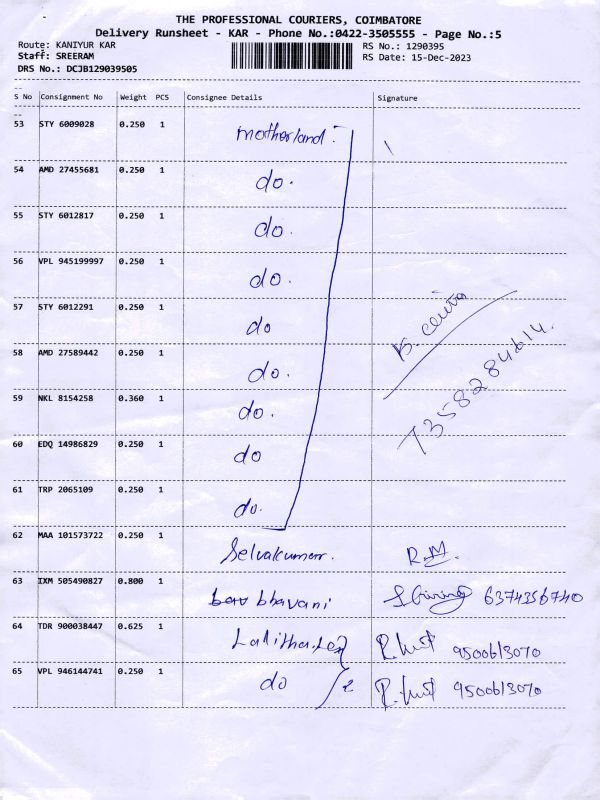 THE PROFESSIONAL COURIERS, COIMBATORE
Delivery Runsheet - KAR - Phone No.:0422-3505555 - Page No.:5
Route: KANIYUR KAR RS No.: 1290395
Staff: SREERAM RS Date: 15-Dec-2023
DRS No.: DCJB129039505
S No Consignment No Weight PCS Consignee Details Signature
53 STY 6009028 0.250 1 motherland.
54 AMD 27455681 0.250 1 do.
55 STY 6012817 0.250 1 do.
56 VPL 945199997 0.250 1 do.
57 STY 6012291 0.250 1 do
58 AMD 27589442 0.250 1 do.
59 NKL 8154258 0.360 1 do.
60 EDQ 14986829 0.250 1 do
61 TRP 2065109 0.250 1 do.
7358284614.
62 MAA 101573722 0.250 1 Selvakumar. R.M.
63 IXM 505490827 0.800 1 bhavani 6374356740
64 TDR 900038447 0.625 1 9500613070
65 VPL 946144741 0.250 1 do /2 9500613070